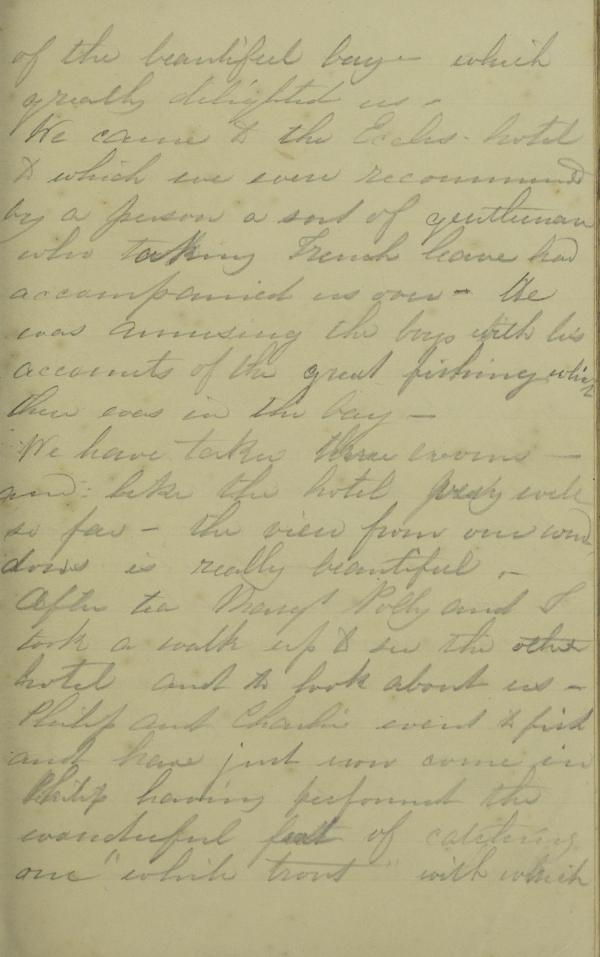 of the beautiful bay - which
greatly delighted us -
We came to the Eccles - hotel
to which we were recommend
by a person a sort of gentleman
who taking French leave had
accompanied us over - He
was amusing the boys with his
accounts of the great fishing which
there was in the bay -
We have taken three rooms -
and: like the hotel very well
so far - the view from our win
dows is really beautiful -
After tea Margt Polly and I
took a walk up to see the other
hotel and to look about us -
Philip and Charlie went to fish
and have just now come in
Philip having performed the
wonderful feat of catching
one "white trout" with which